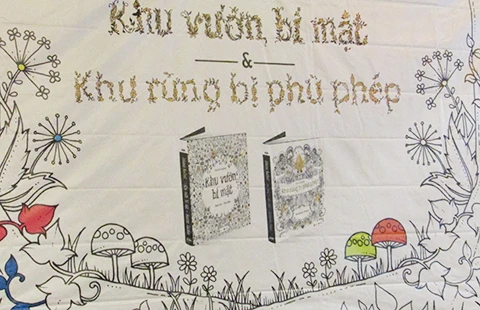 Khu vườn bí mật
&
Khu rừng bị phù phép
Khu vườn
bí mật